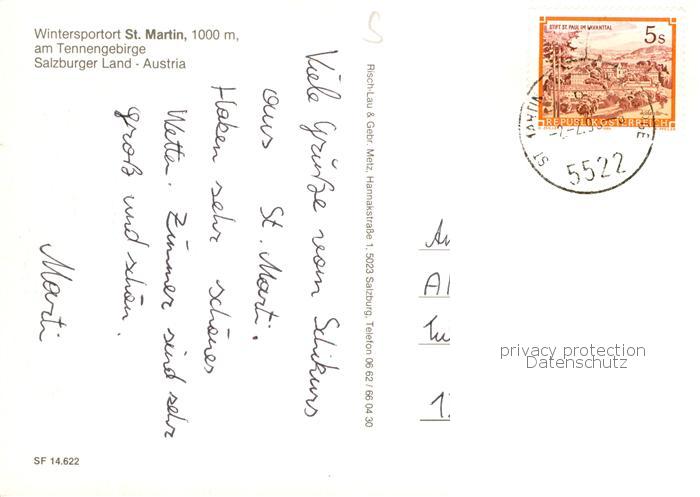 Wintersportort St. Martin, 1000 m,
am Tennengebirge
Salzburger Land - Austria
Viele Grüße vom Schikurs
aus St. Marti.
Haben sehr schönes
Wetter. Zimmer sind sehr
groß und schön.
Marti
SF 14.622
Risch-Lau & Gebr. Metz, Hannakstraße 1, 5023 Salzburg, Telefon 06 62 / 66 04 30
STIFT ST. PAUL IM LAVANTTAL
5 s
REPUBLIK ÖSTERREICH
ST
5522
privacy protection
Datenschutz